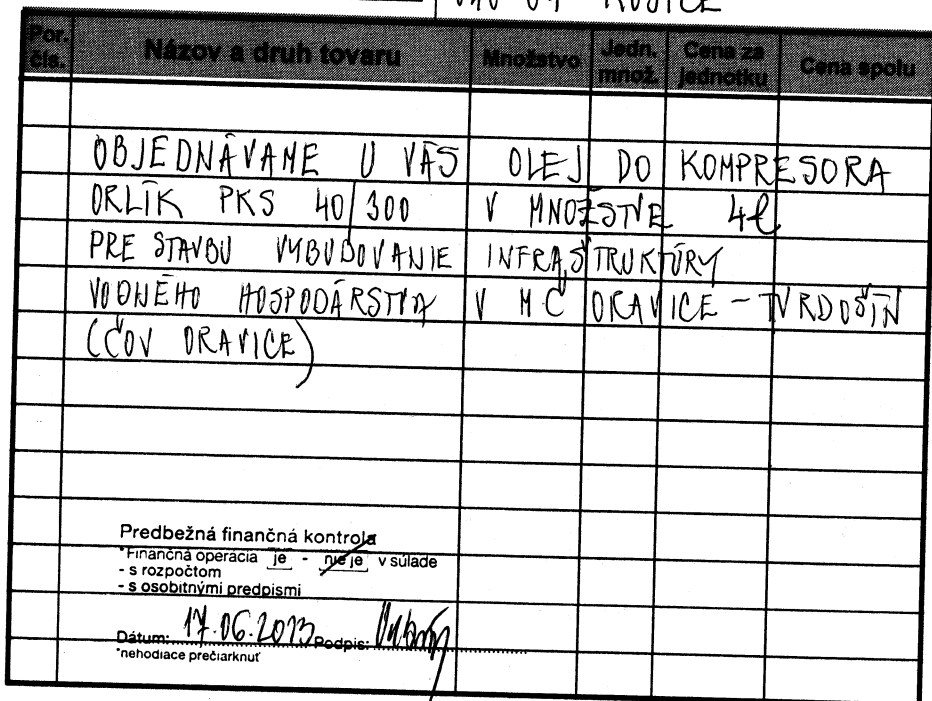 040 01 KOŠICE
Por. čís. Názov a druh tovaru Množstvo Jedn. množ. Cena za jednotku Cena spolu
OBJEDNÁVAME U VÁS OLEJ DO KOMPRESORA
ORLÍK PKS 40/300 V MNOŽSTVE 4l
PRE STAVBU VYBUDOVANIE INFRAŠTRUKTÚRY
VODNÉHO HOSPODÁRSTVA V MČ ORAVICE - TVRDOŠÍN
(ČOV ORAVICE)
Predbežná finančná kontrola
*Finančná operácia je - nie je v súlade
- s rozpočtom
- s osobitnými predpismi
Dátum: 17.06.2013 Podpis:
*nehodiace prečiarknuť